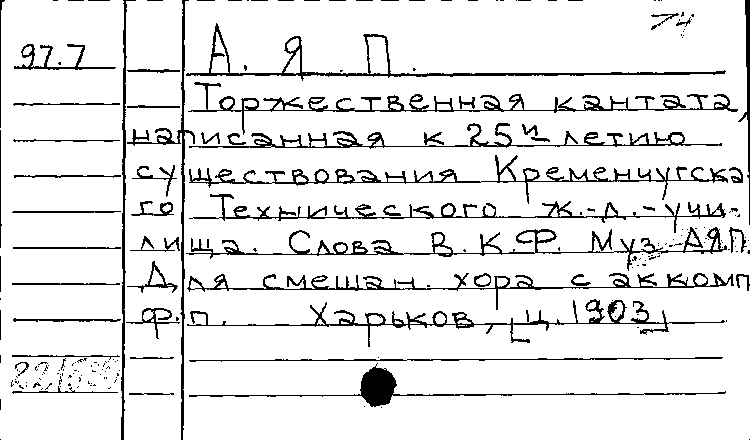 74
97.7 А. Я. П.
Торжественная кантата,
написанная к 25и летию
существования Кременчугска
го Технического ж.-д.-учи-
лища. Слова В.К.Ф. Муз АЯП.
Для смешан. хора с аккомп
ф.п. Харьков, [ц. 1903]